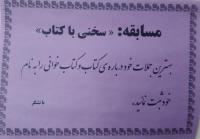 مسابقه: «سخنی با کتاب»
بهترین جملات خود درباره‌ی کتاب و کتاب خوانی را به نام
خود ثبت نمائید.
با تشکر